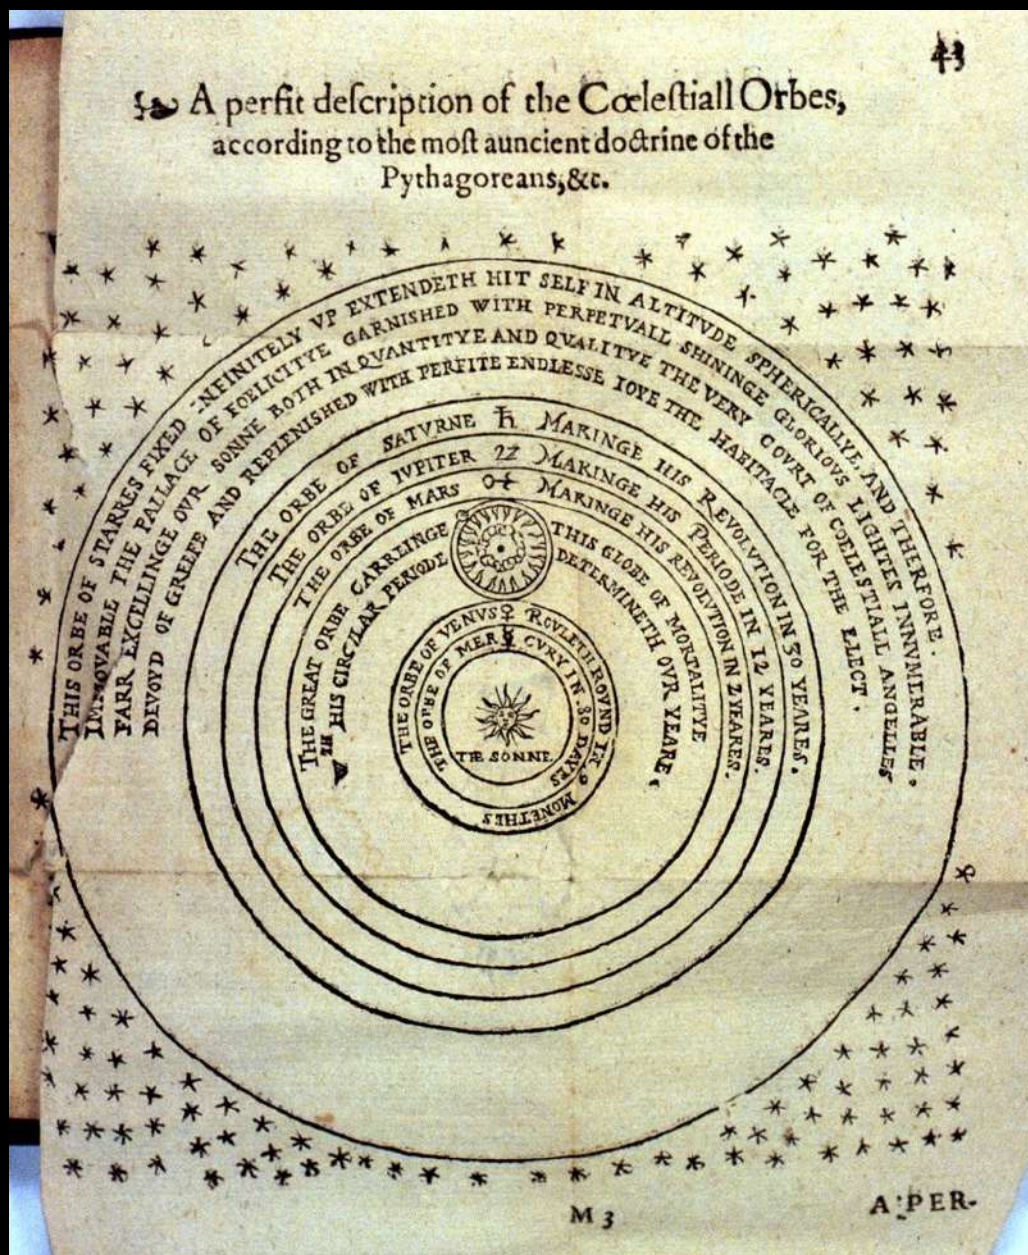 43
A perfit deſcription of the Cœleſtiall Orbes,
according to the moſt auncient doctrine of the
Pythagoreans, &c.
THIS ORBE OF STARRES FIXED INFINITELY VP EXTENDETH HIT SELF IN ALTITVDE SPHERICALLYE, AND THERFORE.
IMMOVABLE THE PALLACE OF FOELICITYE GARNISHED WITH PERPETVALL SHININGE GLORIOVS LIGHTES INNVMERABLE.
FARR EXCELLINGE OVR SONNE BOTH IN QVANTITYE AND QVALITYE THE VERY COVRT OF COELESTIALL ANGELLES
DEVOYD OF GREEFE AND REPLENISHED WITH PERFITE ENDLESSE IOYE THE HABITACLE FOR THE ELECT.
THE ORBE OF SATVRNE ♄ MAKINGE HIS REVOLVTION IN 30 YEARES.
THE ORBE OF IVPITER ♃ MAKINGE HIS PERIODE IN 12 YEARES.
THE ORBE OF MARS ♂ MAKINGE HIS REVOLVTION IN 2 YEARES.
THE GREAT ORBE CARREINGE THIS GLOBE OF MORTALITYE
WITH HIS CIRCVLAR PERIODE DETERMINETH OVR YEARE.
THE ORBE OF VENVS ♀ ROVLETH ROVND IN 9 MONETHES
THE ORBE OF MER ☿ CVRY IN 80 DAYES
THE SONNE
M 3
A PER-